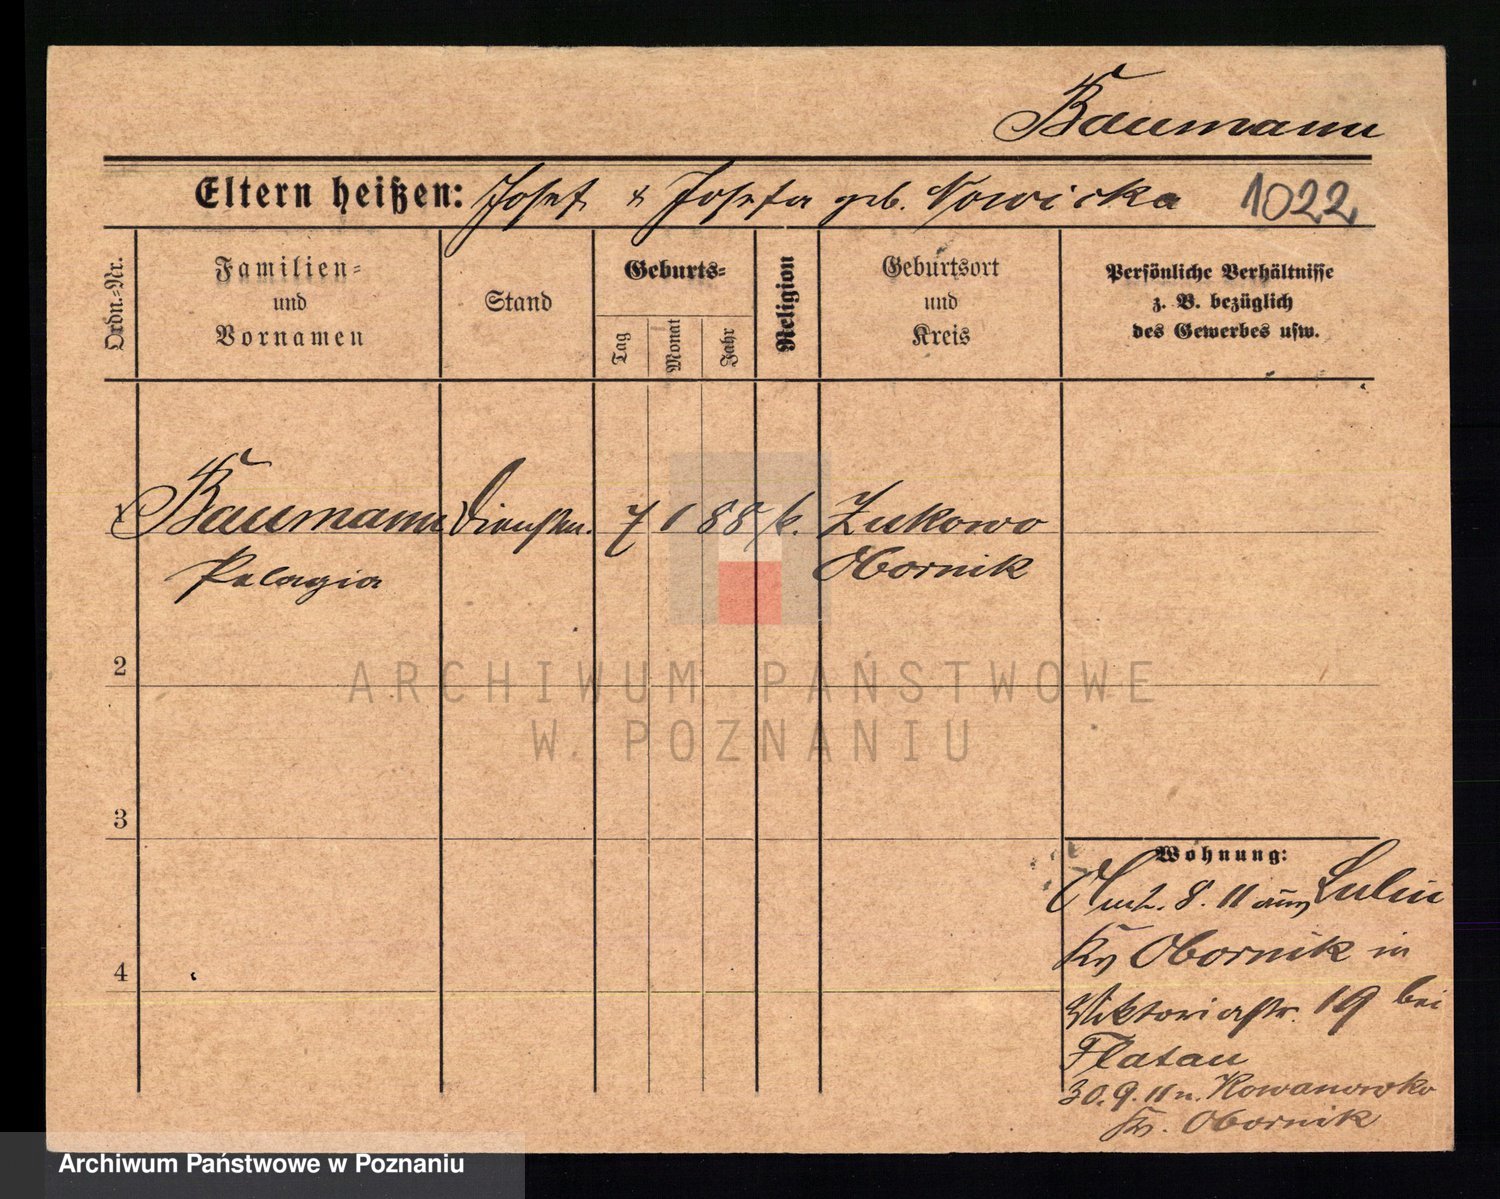 Baumann
Eltern heißen: Josef & Josefa geb. Nowicka 1022
Ordn.-Nr.
Familien-
und
Vornamen
Stand
Geburts-
Tag
Monat
Jahr
Religion
Geburtsort
und
Kreis
Persönliche Verhältnisse
z. B. bezüglich
des Gewerbes usw.
1 Baumann Dienstm. 7 1 88 k. Zukowo
Pelagia Obornik
2
ARCHIWUM PAŃSTWOWE
W POZNANIU
3
Wohnung:
8. 11 aus Lulin
Kr Obornik in
Viktoriastr. 19 bei
Flatau
4
30. 9. 11 n. Kowanowko
Kr. Obornik
Archiwum Państwowe w Poznaniu